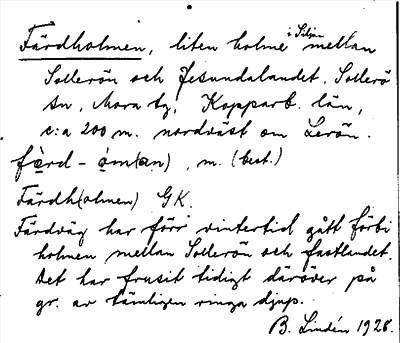 i Siljan
Färdholmen, liten holme mellan
Sollerön och Gesundalandet. Sollerö
sn, Mora tg, Kopparb. län,
c:a 200 m. nordväst om Lerön.
fä̀rd-ȯm(ən), m. (best.)
Färdh(olmen) GK.
Färdväg har förr vintertid gått förbi
holmen mellan Sollerön och fastlandet.
Det har frusit tidigt däröver på
gr. av tämligen ringa djup.
B. Lindén 1928.